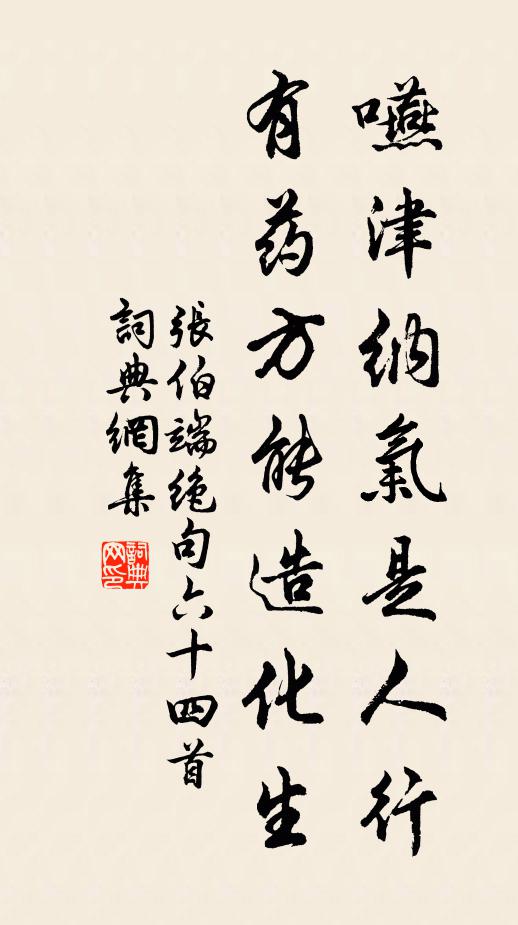 嚥津納氣是人行
有药方能造化生
張伯端絶句六十四首
詞典網集
詞典網印